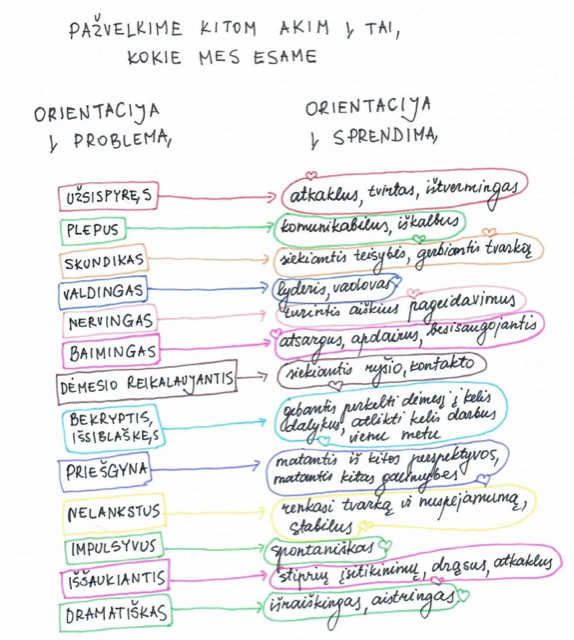 PAŽVELKIME KITOM AKIM Į TAI,
KOKIE MES ESAME
ORIENTACIJA
Į PROBLEMĄ
ORIENTACIJA
Į SPRENDIMĄ
UŽSISPYRĘS
atkaklus, tvirtas, ištvermingas
PLEPUS
komunikabilus, iškalbus
SKUNDIKAS
siekiantis teisybės, gerbiantis tvarką
VALDINGAS
lyderis, vadovas
NERVINGAS
turintis aiškius pageidavimus
BAIMINGAS
atsargus, apdairus, besisaugojantis
DĖMESIO REIKALAUJANTIS
siekiantis ryšio, kontakto
BEKRYPTIS,
IŠSIBLAŠKĘS
gebantis perkelti dėmesį į kelis
dalykus, atlikti kelis darbus
vienu metu
PRIEŠGYNA
matantis iš kitos perspektyvos,
matantis kitas galimybes
NELANKSTUS
renkasi tvarką ir nuspėjamumą,
stabilus
IMPULSYVUS
spontaniškas
IŠŠAUKIANTIS
stiprių įsitikinimų, drąsus, atkaklus
DRAMATIŠKAS
išraiškingas, aistringas